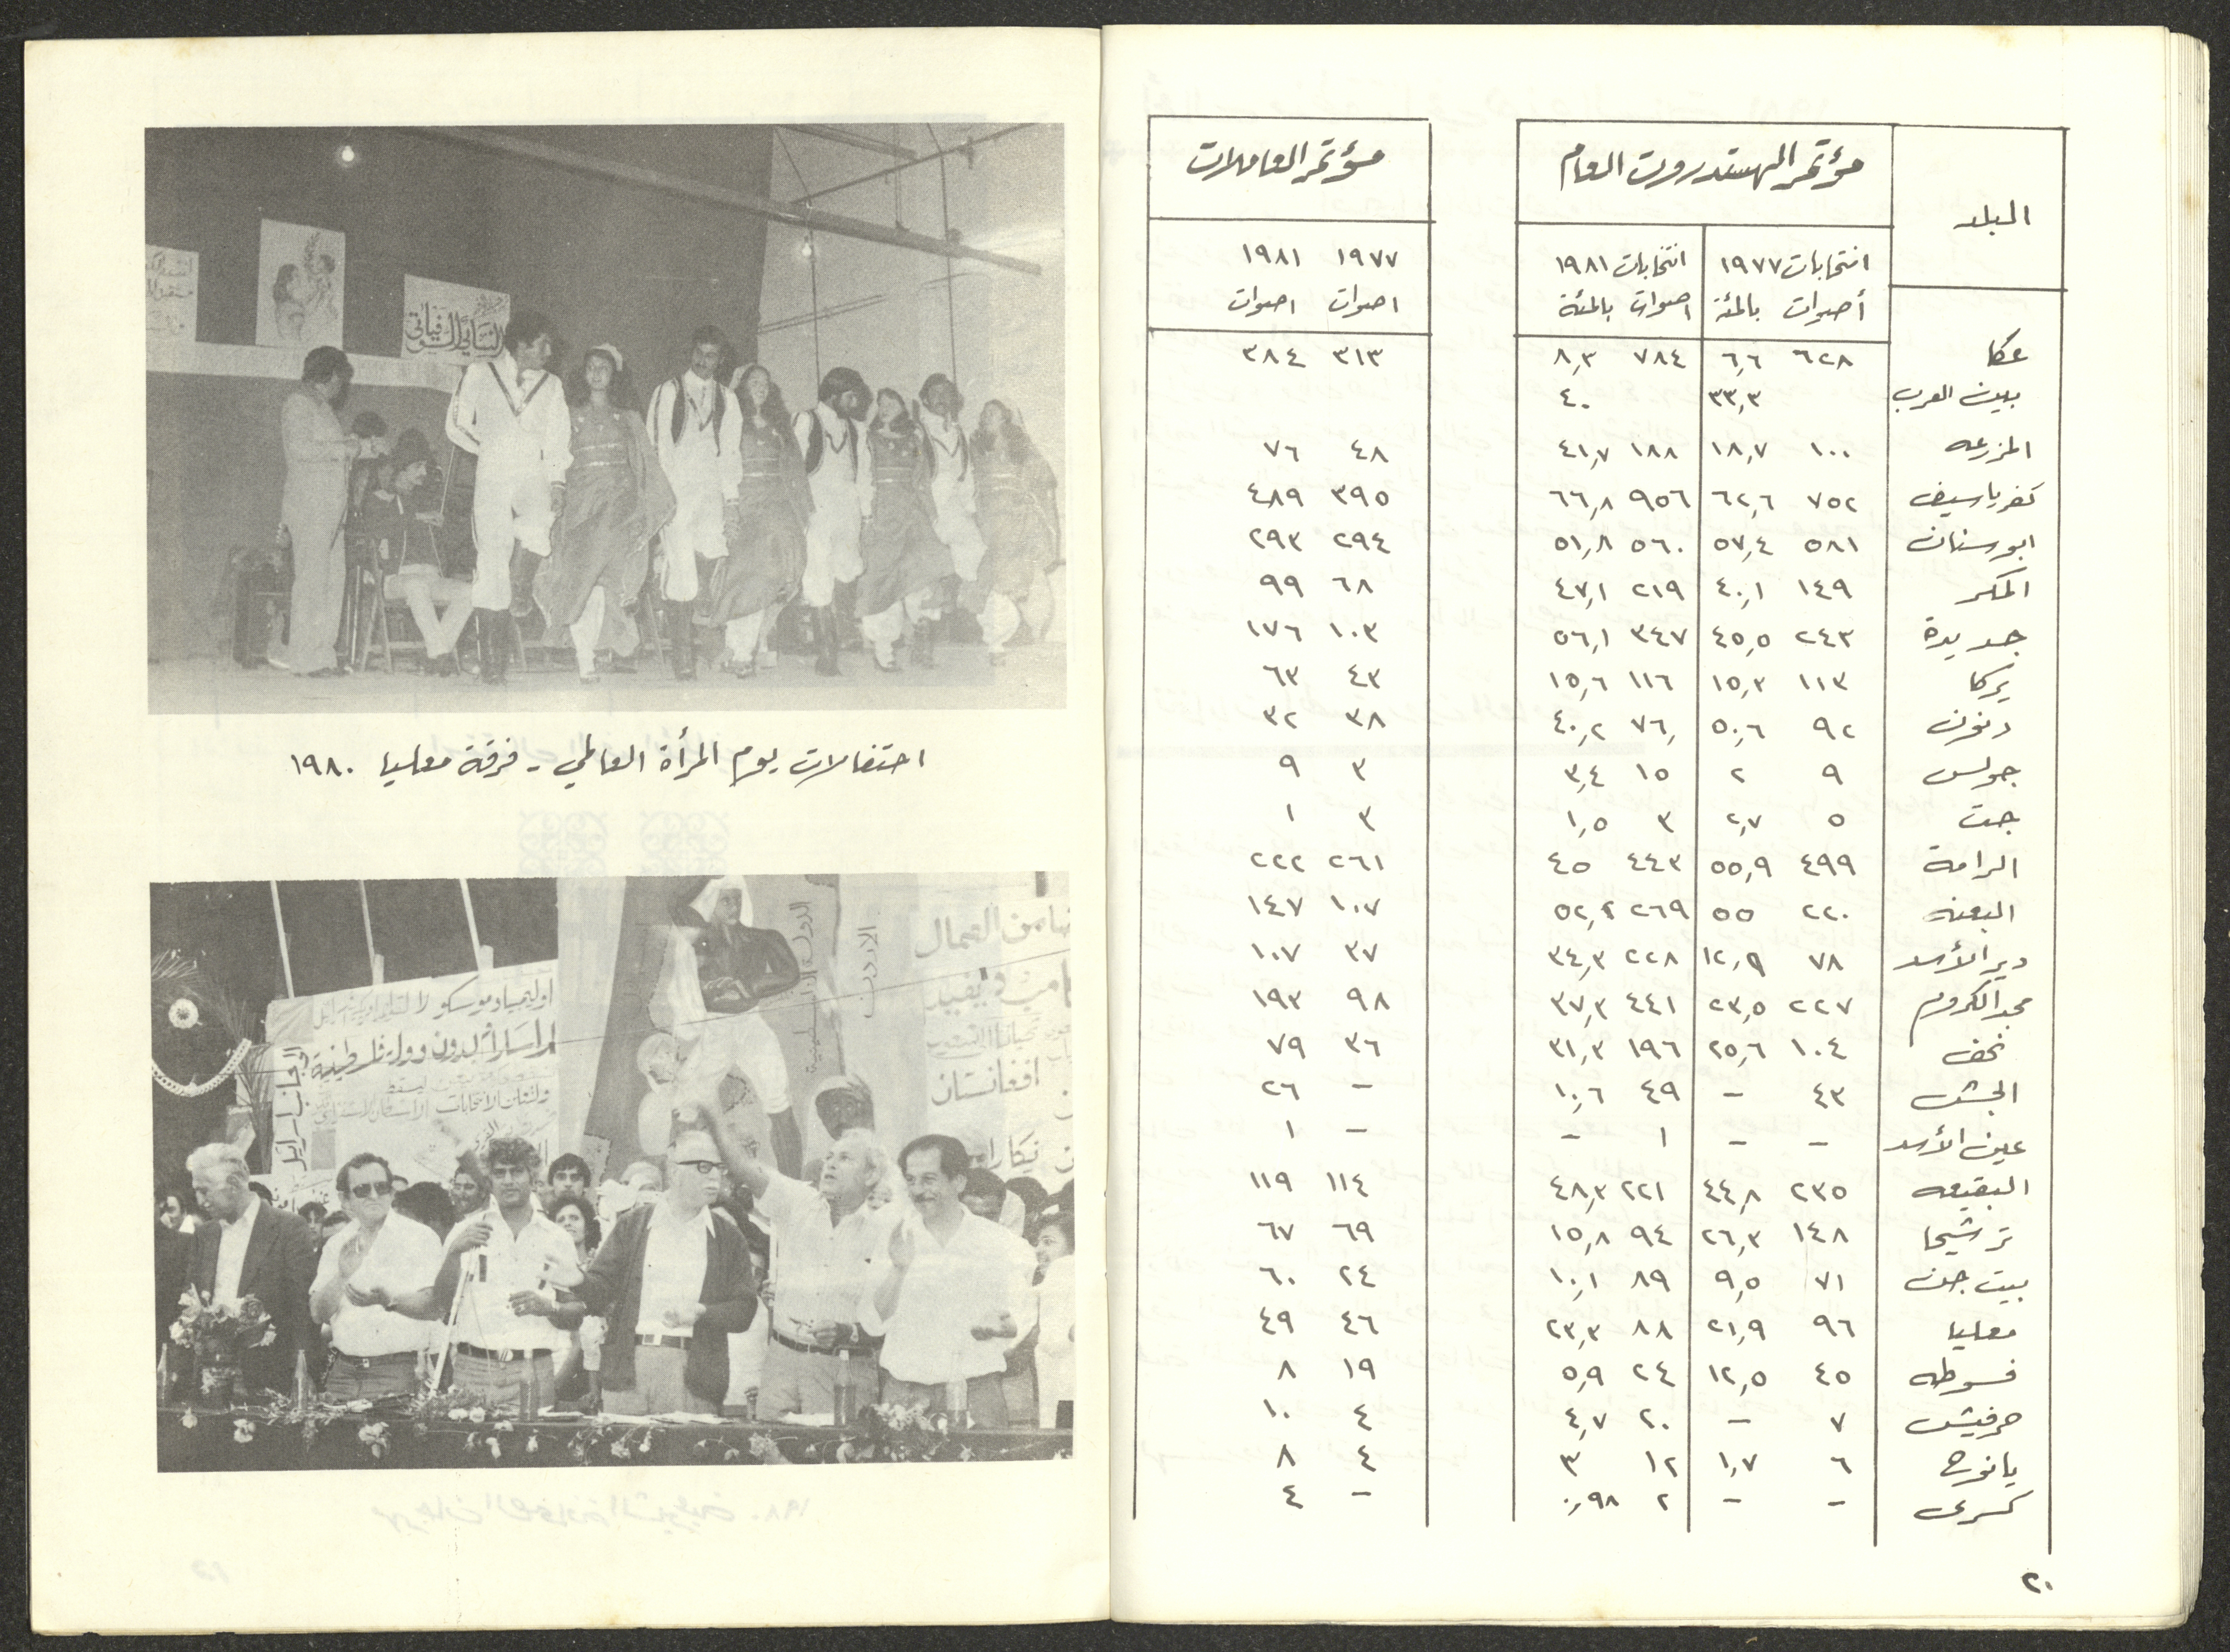 البلد مؤتمر الهستدروت العام مؤتمر العاملات
انتخابات ١٩٧٧ انتخابات ١٩٨١ ١٩٧٧ ١٩٨١
أصوات بالمئة اصوات بالمئة اصوات اصوات
عكا ٦٢٨ ٦,٦ ٧٨٤ ٨,٣ ٣١٣ ٣٨٤
بيوت العرب ٣٣,٣ ٤٠
المزرعه ١٠٠ ١٨,٧ ١٨٨ ٤١,٧ ٤٨ ٧٦
كفر ياسيف ٧٥٢ ٦٢,٦ ٩٥٦ ٦٦,٨ ٣٩٥ ٤٨٩
ابو سنان ٥٨١ ٥٧,٤ ٥٦٠ ٥١,٨ ٢٩٤ ٢٩٣
المكر ١٤٩ ٤٠,١ ٢١٩ ٤٧,١ ٦٨ ٩٩
جديدة ٢٤٣ ٤٥,٥ ٣٤٧ ٥٦,١ ١٠٣ ١٧٦
يركا ١١٣ ١٥,٢ ١١٦ ١٥,٦ ٤٣ ٦٣
دنون ٩٢ ٥٠,٦ ٧٦ ٤٠,٢ ٣٨ ٣٢
جولس ٩ ٢ ١٥ ٣,٤ ٣ ٩
جت ٥ ٢,٧ ٣ ١,٥ ٣ ١
الرامة ٤٩٩ ٥٥,٩ ٤٤٣ ٤٥ ٢٦١ ٢٢٢
البعنه ٢٢٠ ٥٥ ٢٦٩ ٥٢,٢ ١٠٧ ١٤٧
دير الأسد ٧٨ ١٢,٩ ٢٢٨ ٣٤,٣ ٣٧ ١٠٧
مجد الكروم ٢٢٧ ٢٣,٥ ٤٤١ ٣٧,٣ ٩٨ ١٩٣
نحف ١٠٤ ٢٥,٦ ١٩٦ ٣١,٣ ٣٦ ٧٩
الجش ٤٣ – ٤٩ ١٠,٦ – ٢٦
عين الأسد – – ١ – – ١
البقيعه ٢٣٥ ٤٤,٨ ٢٢١ ٤٨,٣ ١١٤ ١١٩
ترشيحا ١٤٨ ٢٦,٣ ٩٤ ١٥,٨ ٦٩ ٦٧
بيت جن ٧١ ٩,٥ ٨٩ ١٠,١ ٢٤ ٦٠
معليا ٩٦ ٢١,٩ ٨٨ ٢٣,٣ ٤٦ ٤٩
فسوطه ٤٥ ١٢,٥ ٢٤ ٥,٩ ١٩ ٨
حرفيش ٧ – ٢٠ ٤,٧ ٤ ١٠
يانوح ٦ ١,٧ ١٢ ٣ ٤ ٨
كسرى – – ٢ ٠,٩٨ – ٤
٢٠
احتفالات يوم المرأة العالمي - فرقة معليا ١٩٨٠
العمال
افغانستان
الاردن